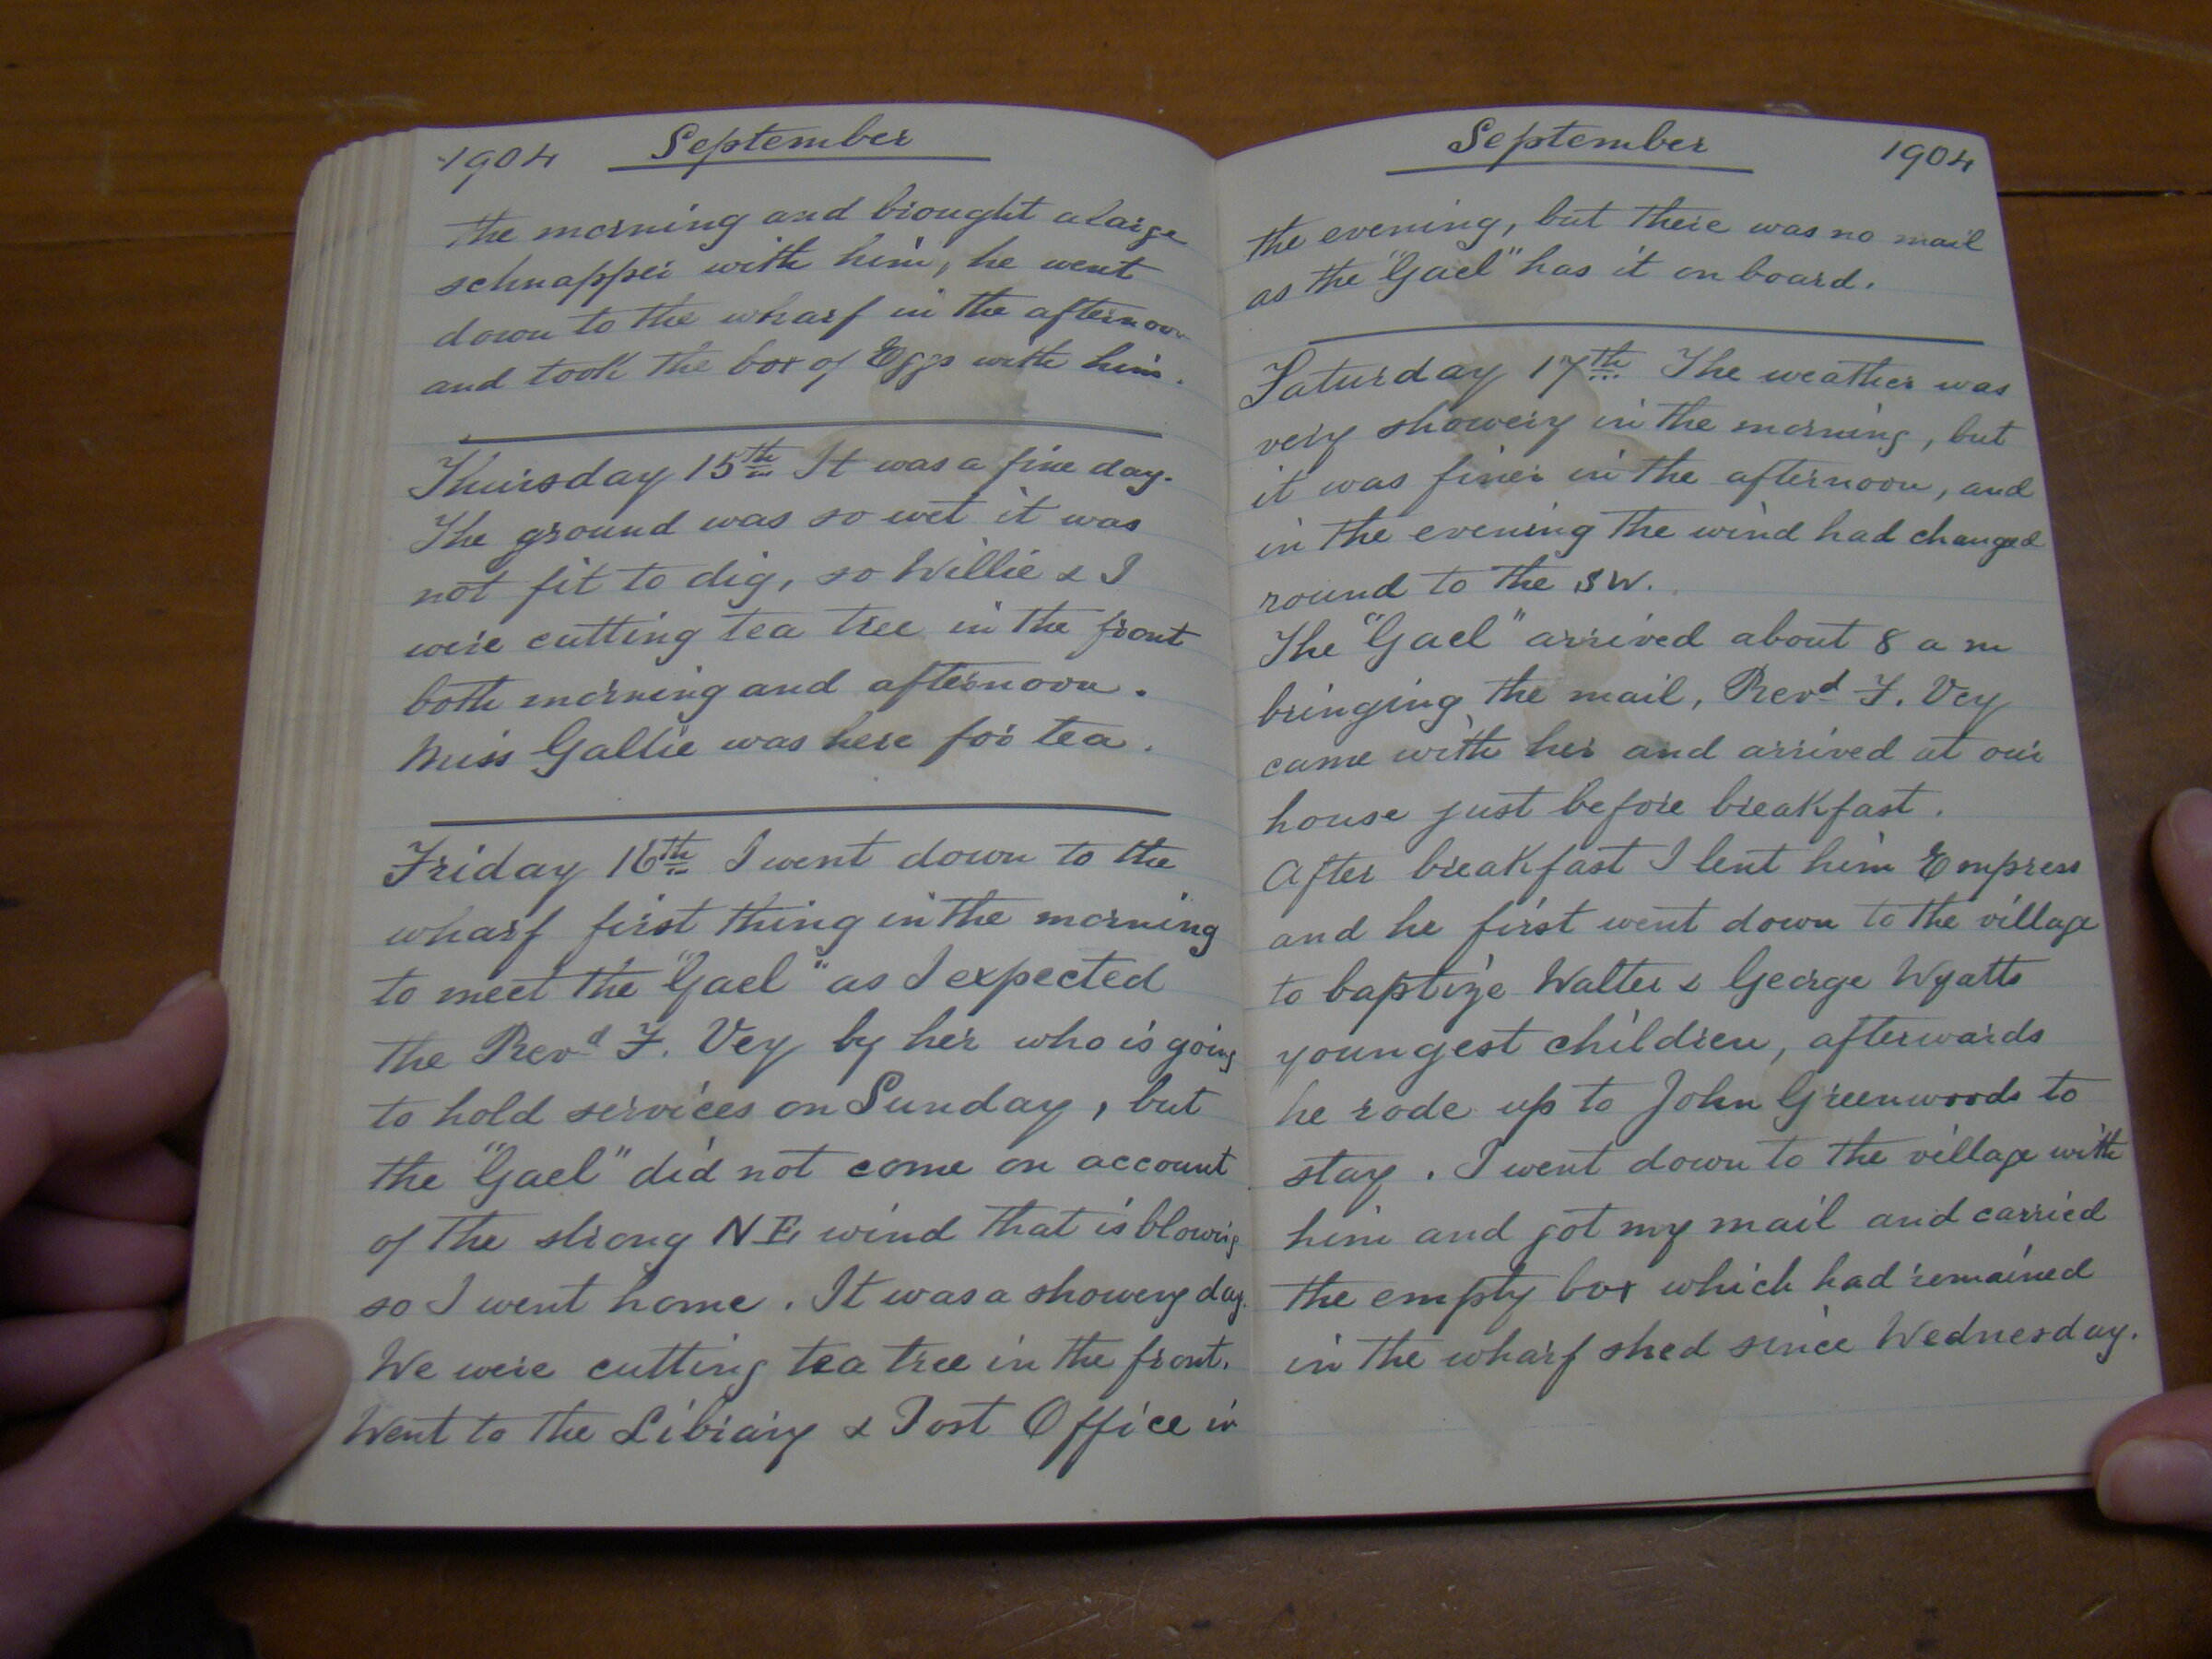 1904 September
the morning and brought a large
schnapper with him, he went
down to the wharf in the afternoon
and took the box of Eggs with him.
Thursday 15th It was a fine day.
The ground was so wet it was
not fit to dig, so Willie & I
were cutting tea tree in the front
both morning and afternoon.
Miss Gallie was here for tea.
Friday 16th I went down to the
wharf first thing in the morning
to meet the "Gael" as I expected
the Revd F. Vey by her who is going
to hold services on Sunday, but
the "Gael" did not come on account
of the strong NE wind that is blowing
so I went home. It was a showery day.
We were cutting tea tree in the front.
Went to the Library & Post Office in
September 1904
the evening, but there was no mail
as the "Gael" has it on board.
Saturday 17th The weather was
very showery in the morning, but
it was finer in the afternoon, and
in the evening the wind had changed
round to the SW.
The "Gael" arrived about 8 a m
bringing the mail, Revd F. Vey
came with her and arrived at our
house just before breakfast.
After breakfast I lent him Empress
and he first went down to the village
to baptize Walter & George Wyatts
youngest children, afterwards
he rode up to John Greenwoods to
stay. I went down to the village with
him and got my mail and carried
the empty box which had remained
in the wharf shed since Wednesday.